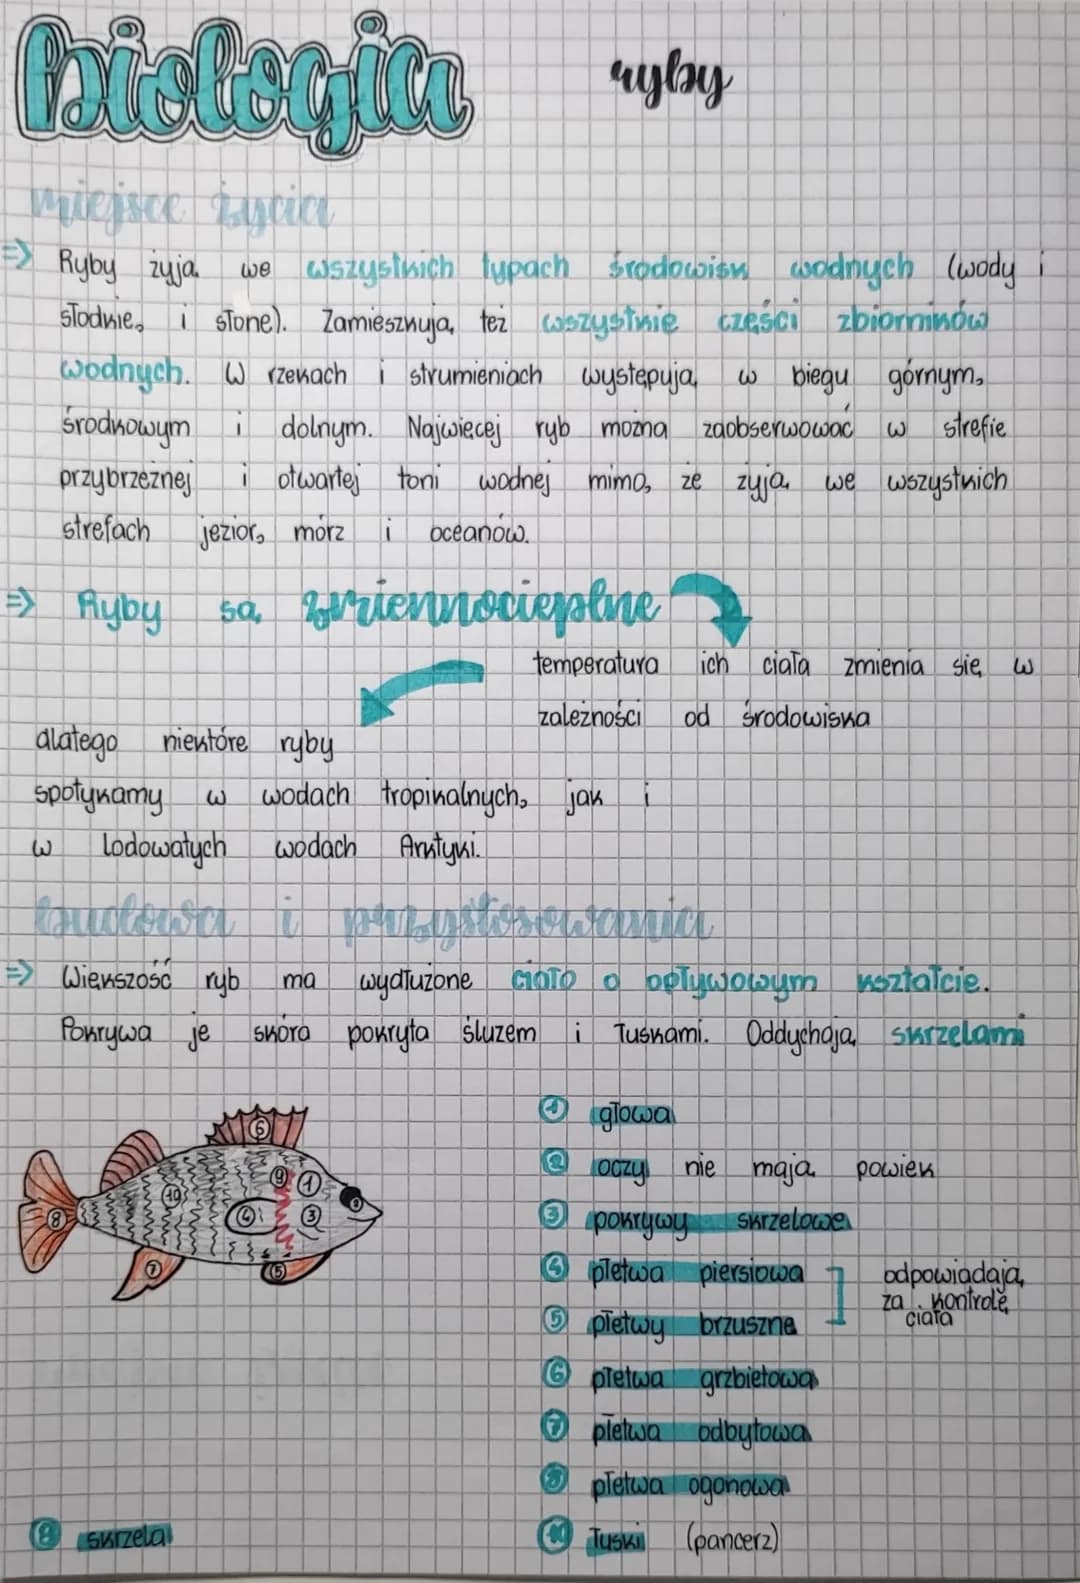 biologia
ryby
miejsce życia
=> Ryby żyją we wszystkich typach środowisk wodnych (wody i
słodkie, i słone). Zamieszkują też wszystkie części zbiorników
wodnych. W rzekach i strumieniach występują w biegu górnym,
środkowym i dolnym. Najwięcej ryb można zaobserwować w strefie
przybrzeżnej i otwartej toni wodnej mimo, że żyją we wszystkich
strefach jezior, mórz i oceanów.
=> Ryby są zmiennocieplne
temperatura ich ciała zmienia się w
zależności od środowiska
dlatego niektóre ryby
spotykamy w wodach tropikalnych, jak i
w lodowatych wodach Arktyki.
budowa i przystosowania
=> Większość ryb ma wydłużone ciało o opływowym kształcie.
Pokrywa je skóra pokryta śluzem i łuskami. Oddychają skrzelami
6
10
9
1
8
4
3
7
5
1 głowa
2 oczy nie mają powiek
3 pokrywy skrzelowe
4 płetwa piersiowa
5 płetwy brzuszne
odpowiadają
za kontrolę
ciała
6 płetwa grzbietowa
7 płetwa odbytowa
8 płetwa ogonowa
skrzela
10 łuski (pancerz)